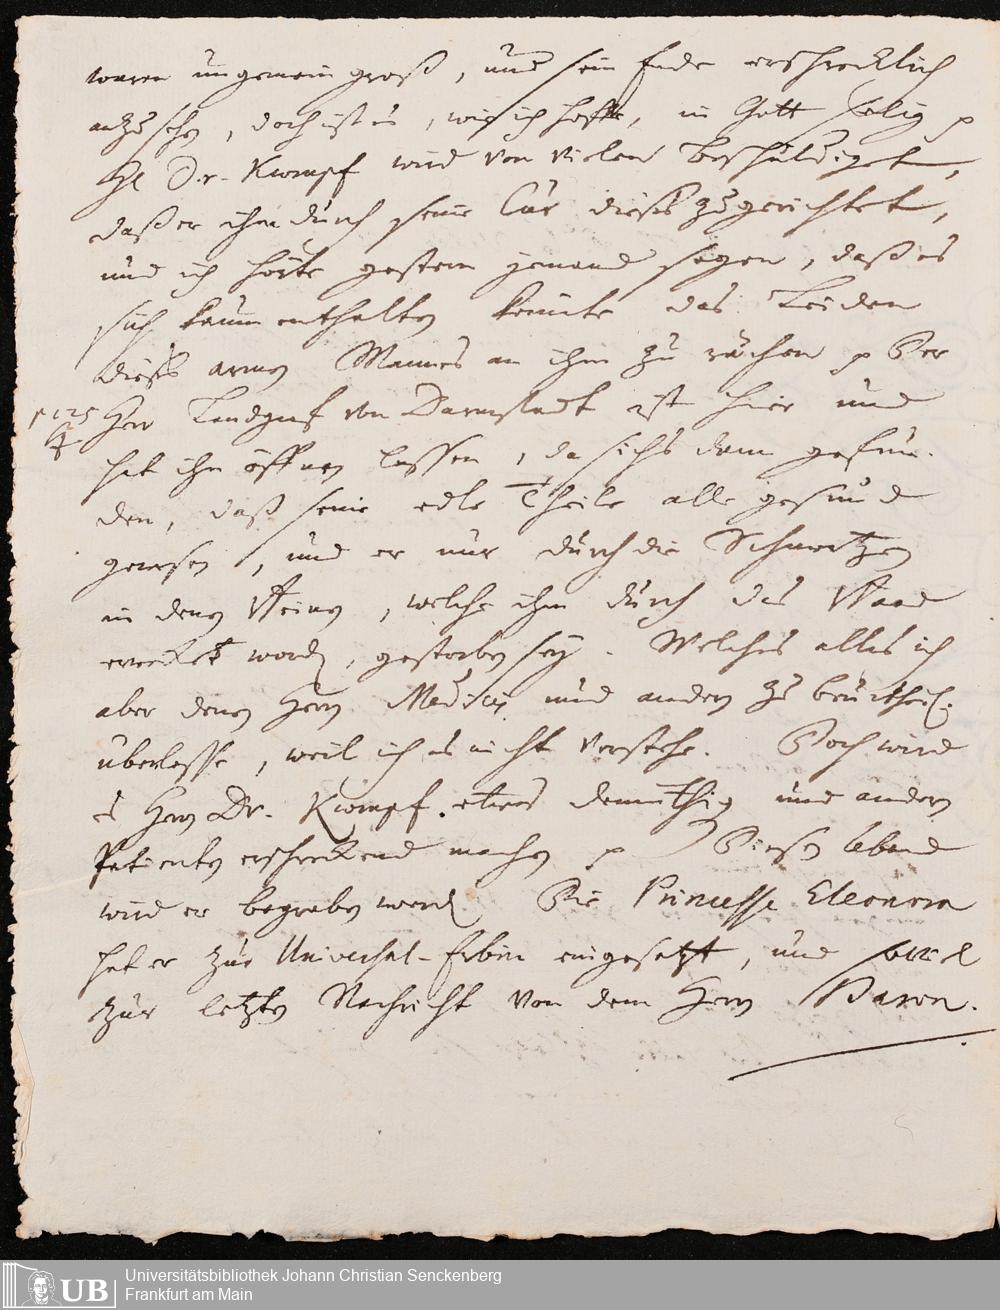 waren ungemein groß, und sein Ende erschrecklich
anzusehen, doch ist es, wie ich hoffe, in Gott selig p
H. Dr. Kæmpf wird von vielen beschuldiget,
daß er ihn durch seine Cur dieß zugerichtet,
und ich hörte gestern jemand sagen, daß es
sich kaum enthalten könnte das Leiden
dießes armen Mannes an ihm zu rächen p Der
Herr Landgraf von Darmstadt ist hier und
hat ihn öffnen lassen, da sichs dann gefun-
den, daß seine edle Theile alle gesund
gewesen, und er nur durch die Schmertzen
in denen Beinen, welche ihm durch das
erwecket worden, gestorben sey. Welches alles ich
aber denen Herrn Medicis und andern zu beurtheilen
überlasse, weil ich es nicht verstehe. Doch wird
es Herrn Dr. Kæmpf etwas demüthig und andern
Patienten erschreckend machen p Diesen Abend
wird er begraben werden Die Princesse Eleonora
hat er zur Universal-Erbin eingesetzt, und soviel
zur letzten Nachricht von dem Herrn Baron.
UB
Universitätsbibliothek Johann Christian Senckenberg
Frankfurt am Main